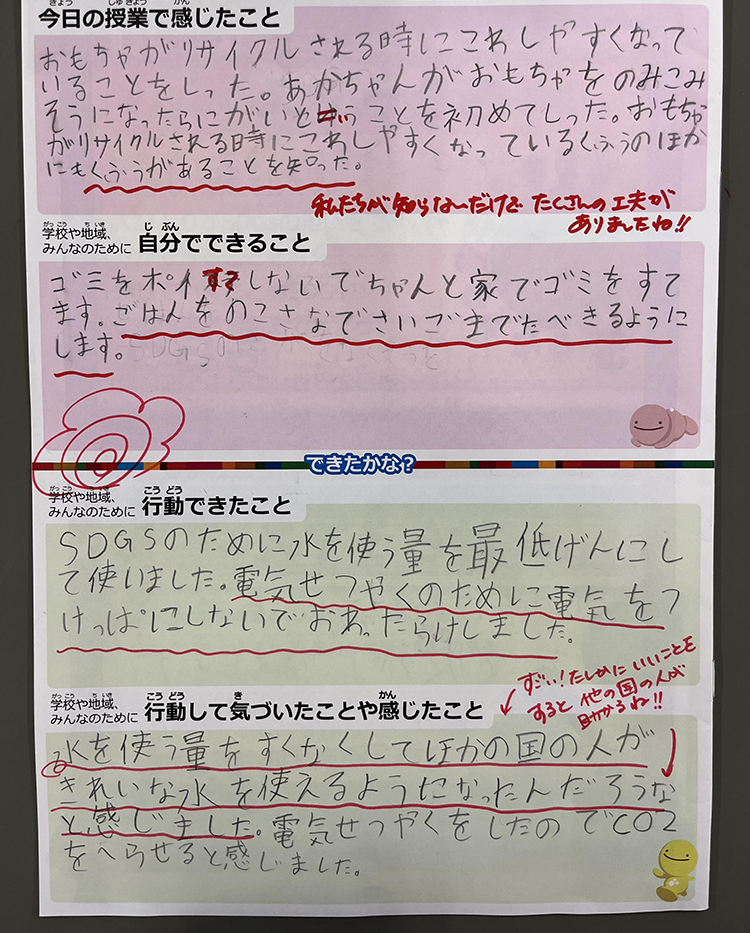 今日の授業で感じたこと
おもちゃがリサイクルされる時にこわしやすくなって
いることをしった。あかちゃんがおもちゃをのみこみ
そうになったらにがいということを初めてしった。おもちゃ
がリサイクルされる時にこわしやすくなっているくふうのほか
にもくふうがあることを知った。
私たちが知らないだけで たくさんの工夫が
ありましたね!!
がっこう ちいき じぶん
学校や地域、
みんなのために 自分でできること
ゴミをポイすてしないでちゃんと家でゴミをすて
ます。ごはんをのこさなでさいごまでたべきるように
します。
できたかな?
がっこう ちいき こうどう
学校や地域、
みんなのために 行動できたこと
SDGSのために水を使う量を最低げんにし
て使いました。電気せつやくのために電気をつ
けっぱにしないでおわったらけしました。
すごい!ためにいいことを
すると他の国の人が
助かるね!!
がっこう ちいき こうどう き かん
学校や地域、
みんなのために 行動して気づいたことや感じたこと
水を使う量をすくなくしてほかの国の人が
きれいな水を使えるようになったんだろうな
と感じました。電気せつやくをしたのでCO2
をへらせると感じました。